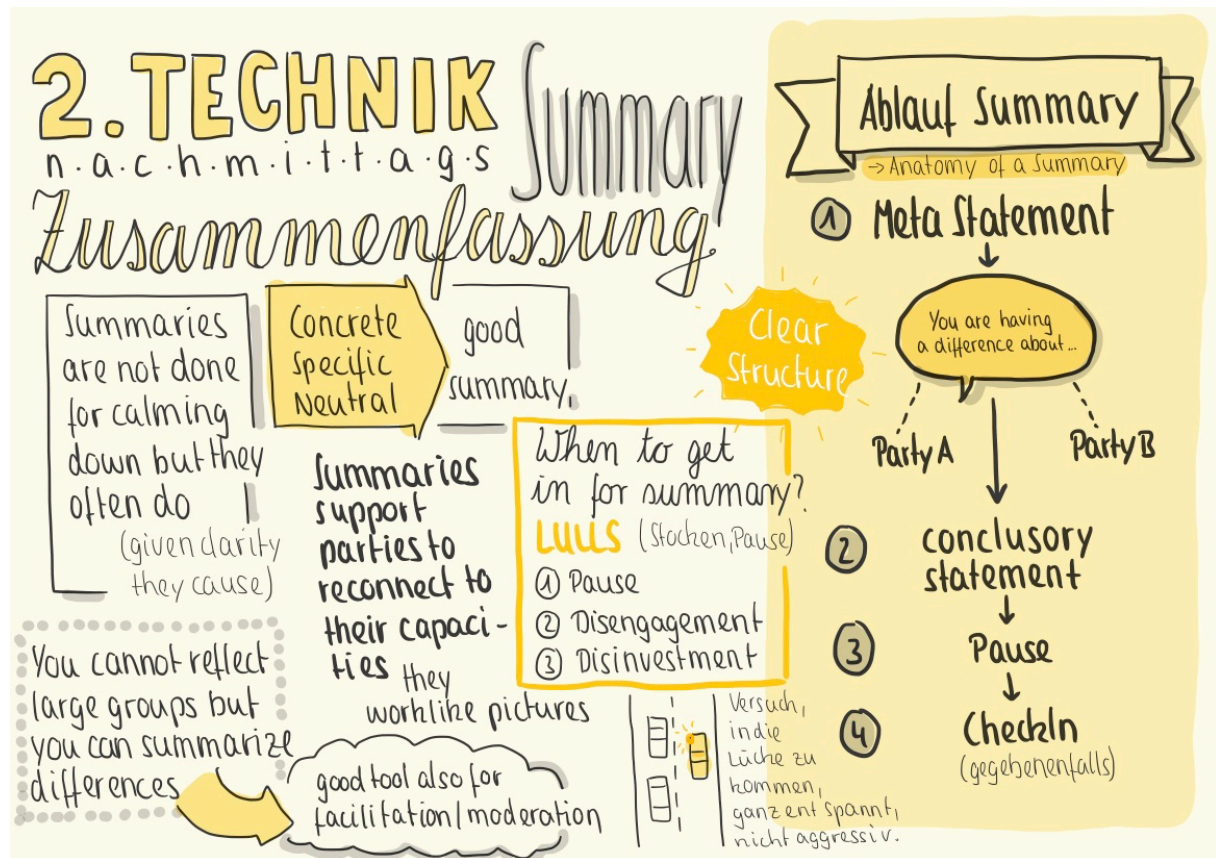 2. TECHNIK
n·a·c·h·m·i·t·t·a·g·s
Summary
Zusammenfassung
Summaries
are not done
for calming
down but they
often do
(given clarity
they cause)
Concrete
Specific
Neutral
good
summary,
Summaries
support
parties to
reconnect to
their capaci-
ties
they
work like pictures
When to get
in for summary?
LULLS (Stocken, Pause)
1 Pause
2 Disengagement
3 Disinvestment
You cannot reflect
large groups but
you can summarize
differences
good tool also for
facilitation/moderation
Versuch,
in die
Lücke zu
kommen,
ganz entspannt,
nicht aggressiv.
Clear
Structure
Ablauf Summary
→ Anatomy of a Summary
1 Meta Statement
You are having
a difference about...
Party A
Party B
2 conclusory
statement
3 Pause
4 CheckIn
(gegebenenfalls)